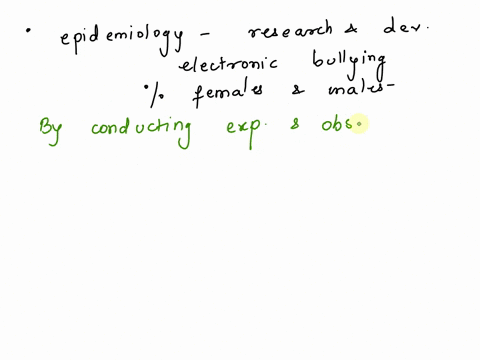 • epidemiology - research & dev.
electronic bullying
% females & males-
By conducting exp. & obs.